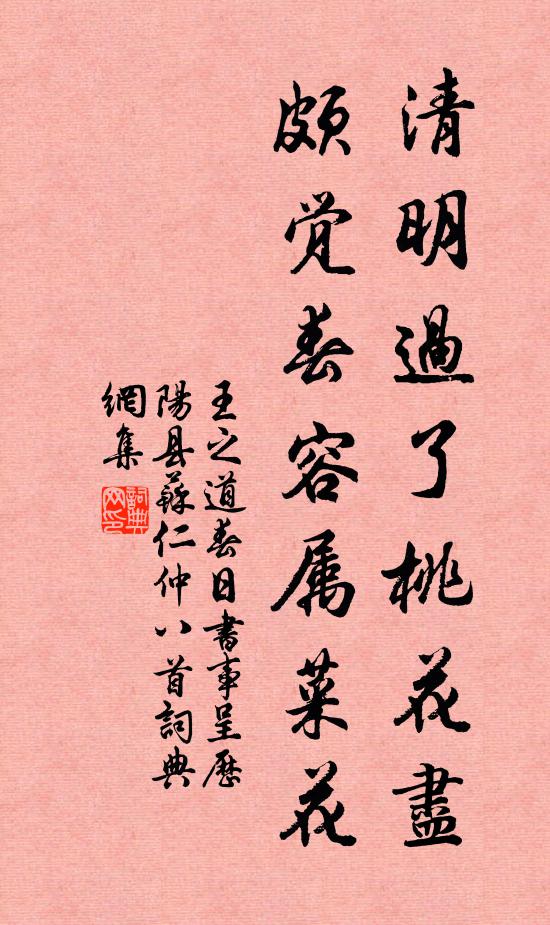 清明過了桃花盡
頗觉春容属菜花
王之道春日書事呈歷
陽县蘇仁仲八首詞典
網集
詞典
网印